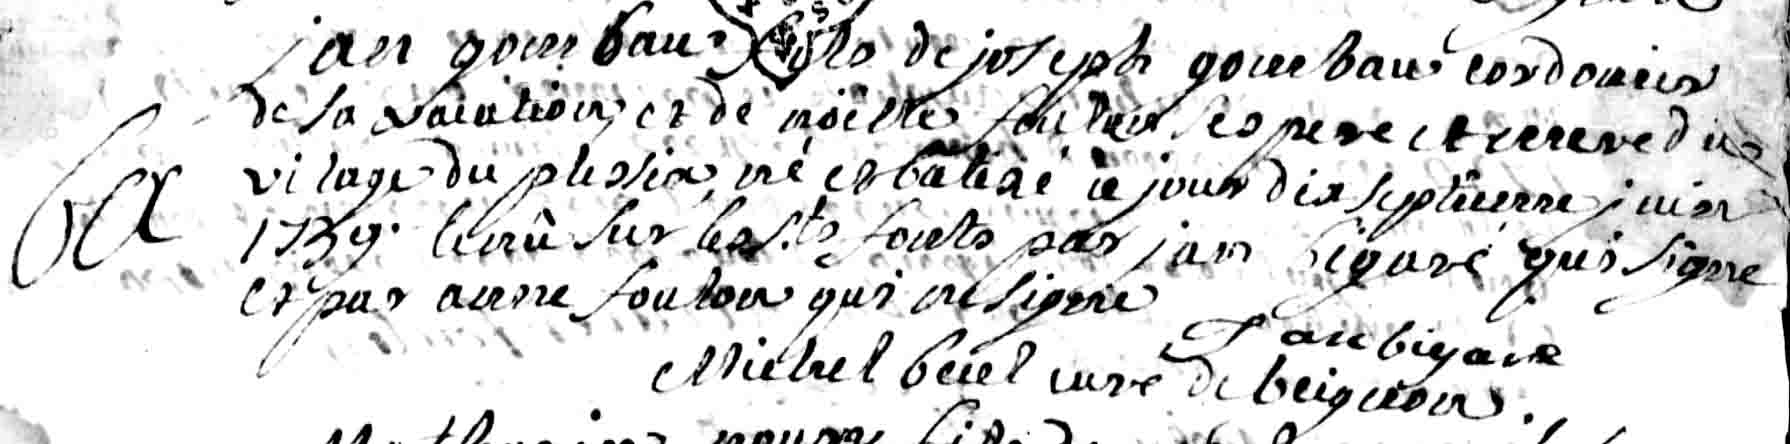 jan gombau fils de joseph gombau cordonier
de sa vacation et de noëlle foulon ses pere et mere du
vilage du plessix, né et batizé ce jour dix septième juin
1739. tenu sur les sts fonts par jan bigaré qui signe
et par anne foulon qui ne signe
Jan bigare
Michel beul curé de beignon.
ba